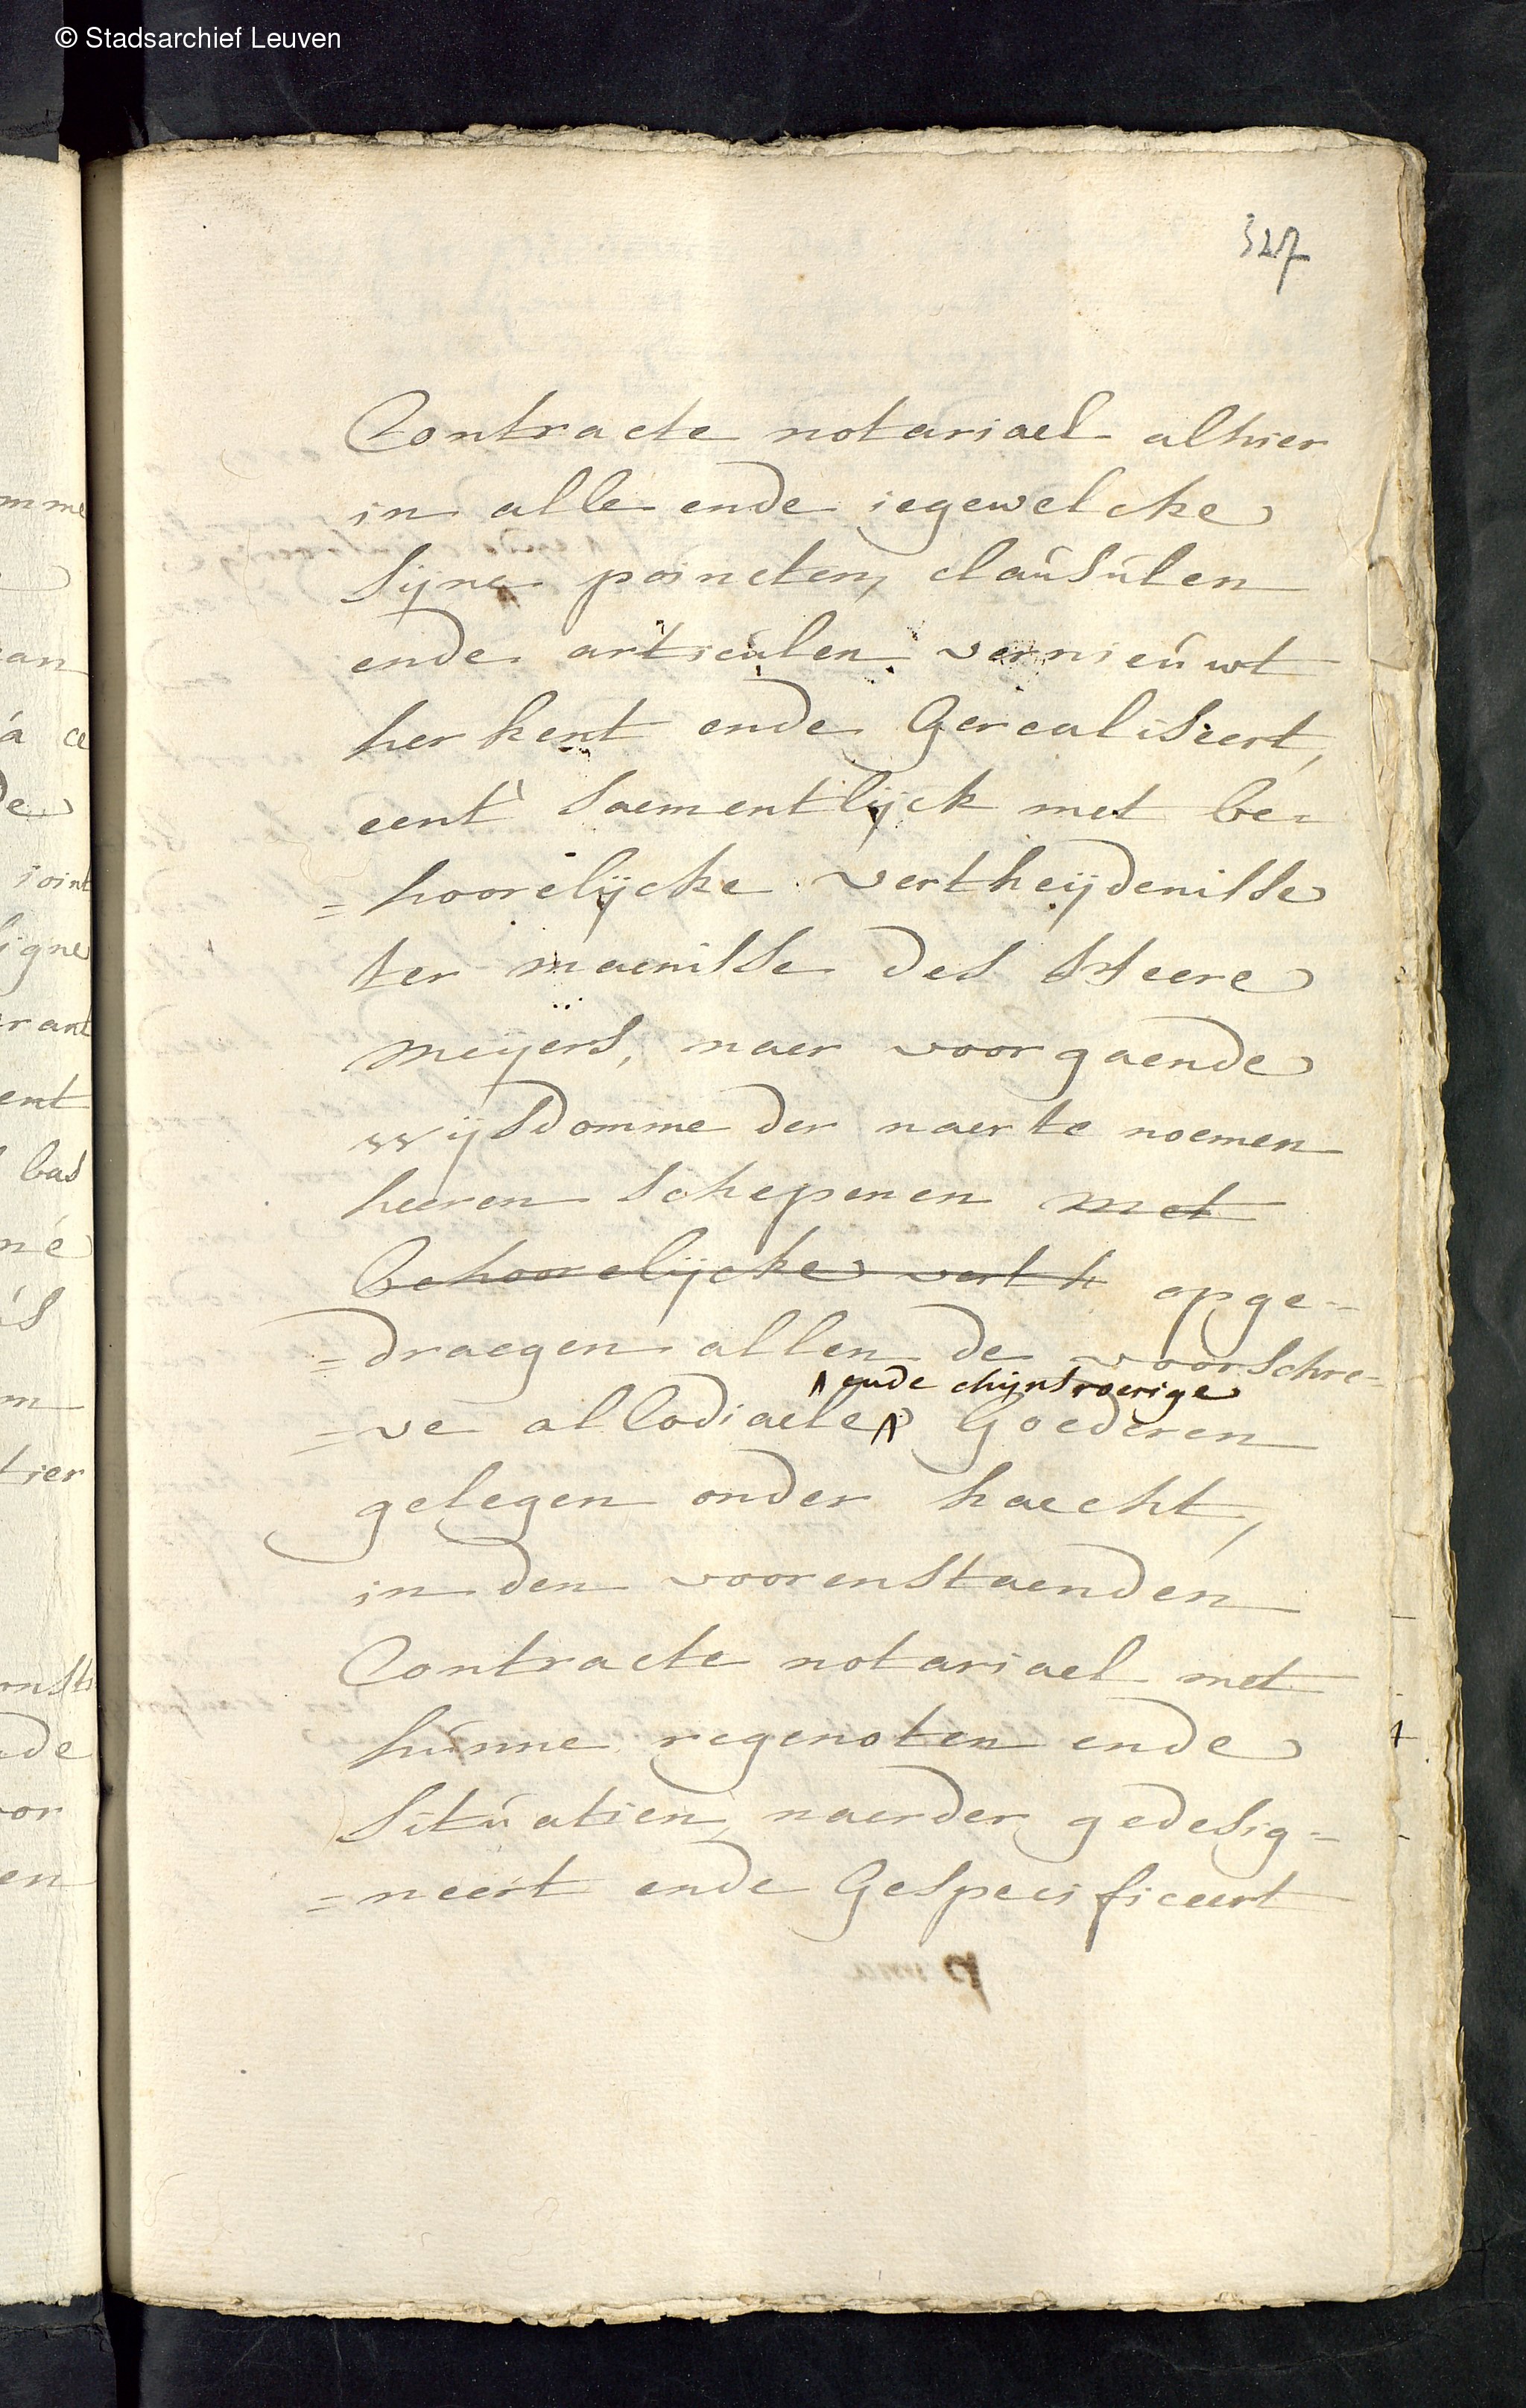 © Stadsarchief Leuven
327
Contracte notariael alhier
in alle ende iegewelcke
sijne poincten, clausulen
ende articulen vernieuwt
herkent ende Gerealiseert,
eent saementlijck met be=
=hoorelijcke vertheijdenisse
ter maenisse des Heere
meijers, naer voorgaende
wijsdomme der naerte noemen
heeren schepenen met
Behoorelijcke verth opge=
=draegen allen de voorschre=
ende chijnsroerige
=ve allodiaele Goederen
gelegen onder haecht,
in den voorenstaenden
Contracte notariael met
hunne regenoten ende
situatien, naerder gedesig=
=neert ende Gespecificeert